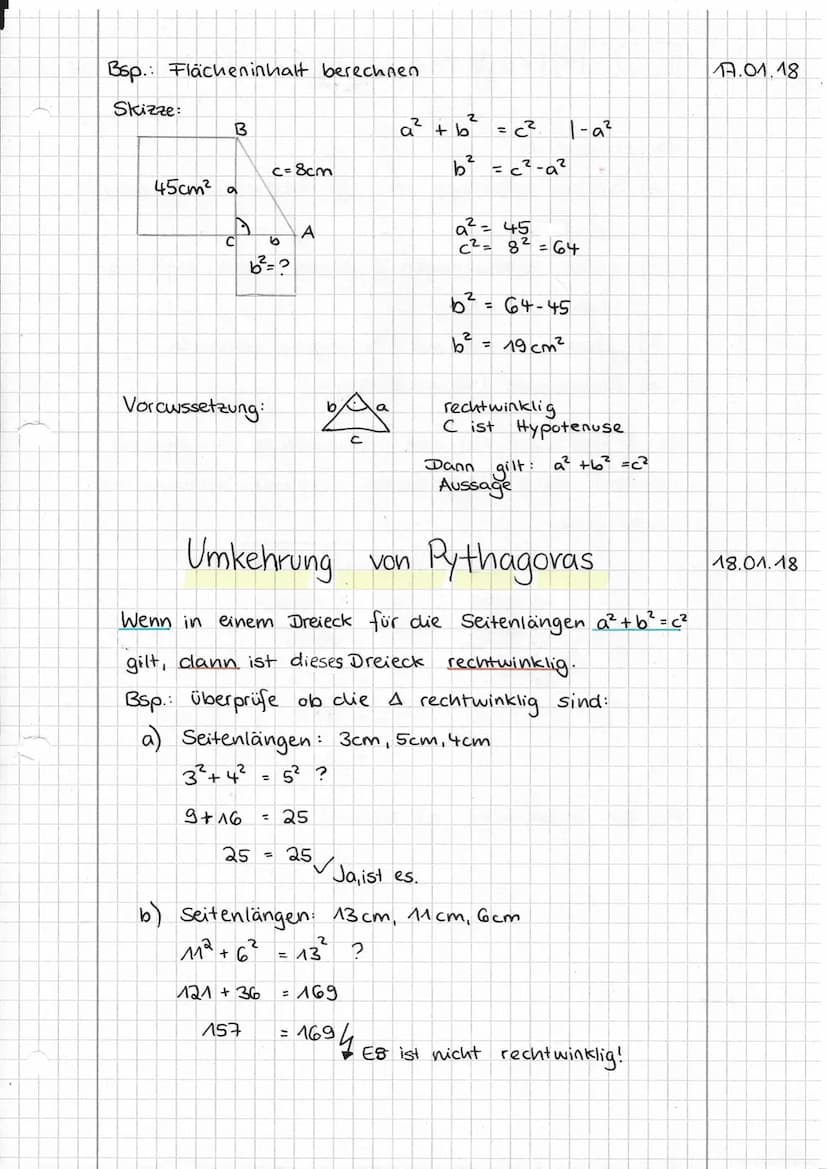 Bsp.: Flächeninhalt berechnen 17.01.18
Skizze:
B
a² + b² = c² |-a²
b² = c²-a²
c=8cm
45cm² a
C b A
b²=?
a² = 45
c² = 8² = 64
b² = 64-45
b² = 19cm²
Voraussetzung: b a c rechtwinklig
C ist Hypotenuse
Dann gilt: a² +b² =c²
Aussage
Umkehrung von Pythagoras 18.01.18
Wenn in einem Dreieck für die Seitenlängen a²+b²=c²
gilt, dann ist dieses Dreieck rechtwinklig.
Bsp.: überprüfe ob die Δ rechtwinklig sind:
a) Seitenlängen: 3cm, 5cm, 4cm
3²+4² = 5² ?
9+16 = 25
25 = 25 ✓ Ja, ist es.
b) Seitenlängen: 13cm, 11cm, 6cm
11² + 6² = 13² ?
121 + 36 = 169
157 = 169 ↯
Es ist nicht rechtwinklig!